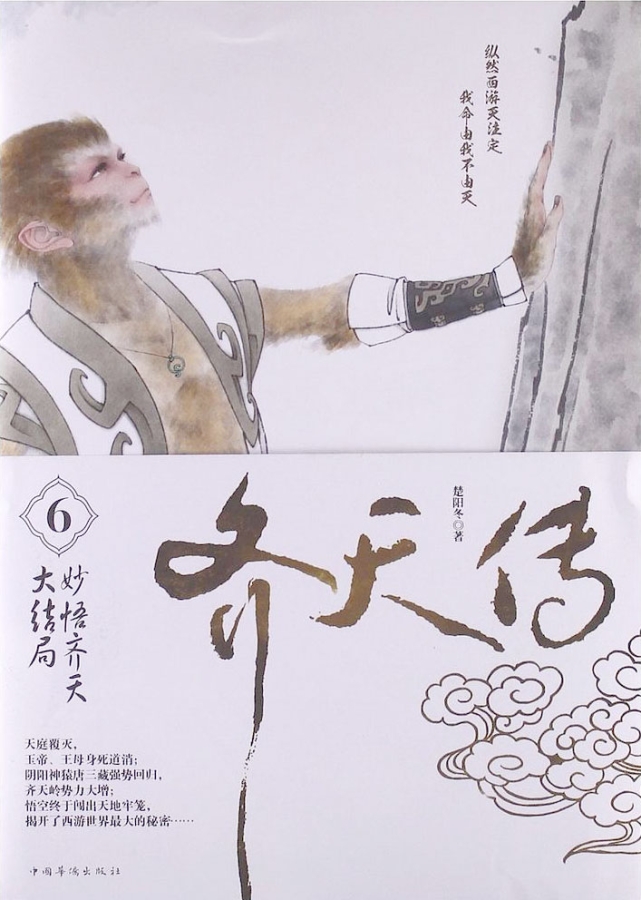 纵然西游天注定
我命由我不由天
齐天传
楚阳冬◎著
6
妙悟齐天
大结局
天庭覆灭，
玉帝、王母身死道消；
阴阳神猿唐三藏强势回归，
齐天岭势力大增；
悟空终于闯出天地牢笼，
揭开了西游世界最大的秘密……
中国华侨出版社